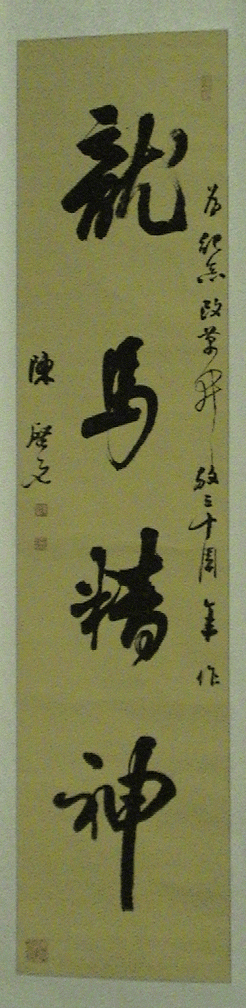 為紀念改革開放三十周年作
龍馬精神
陳